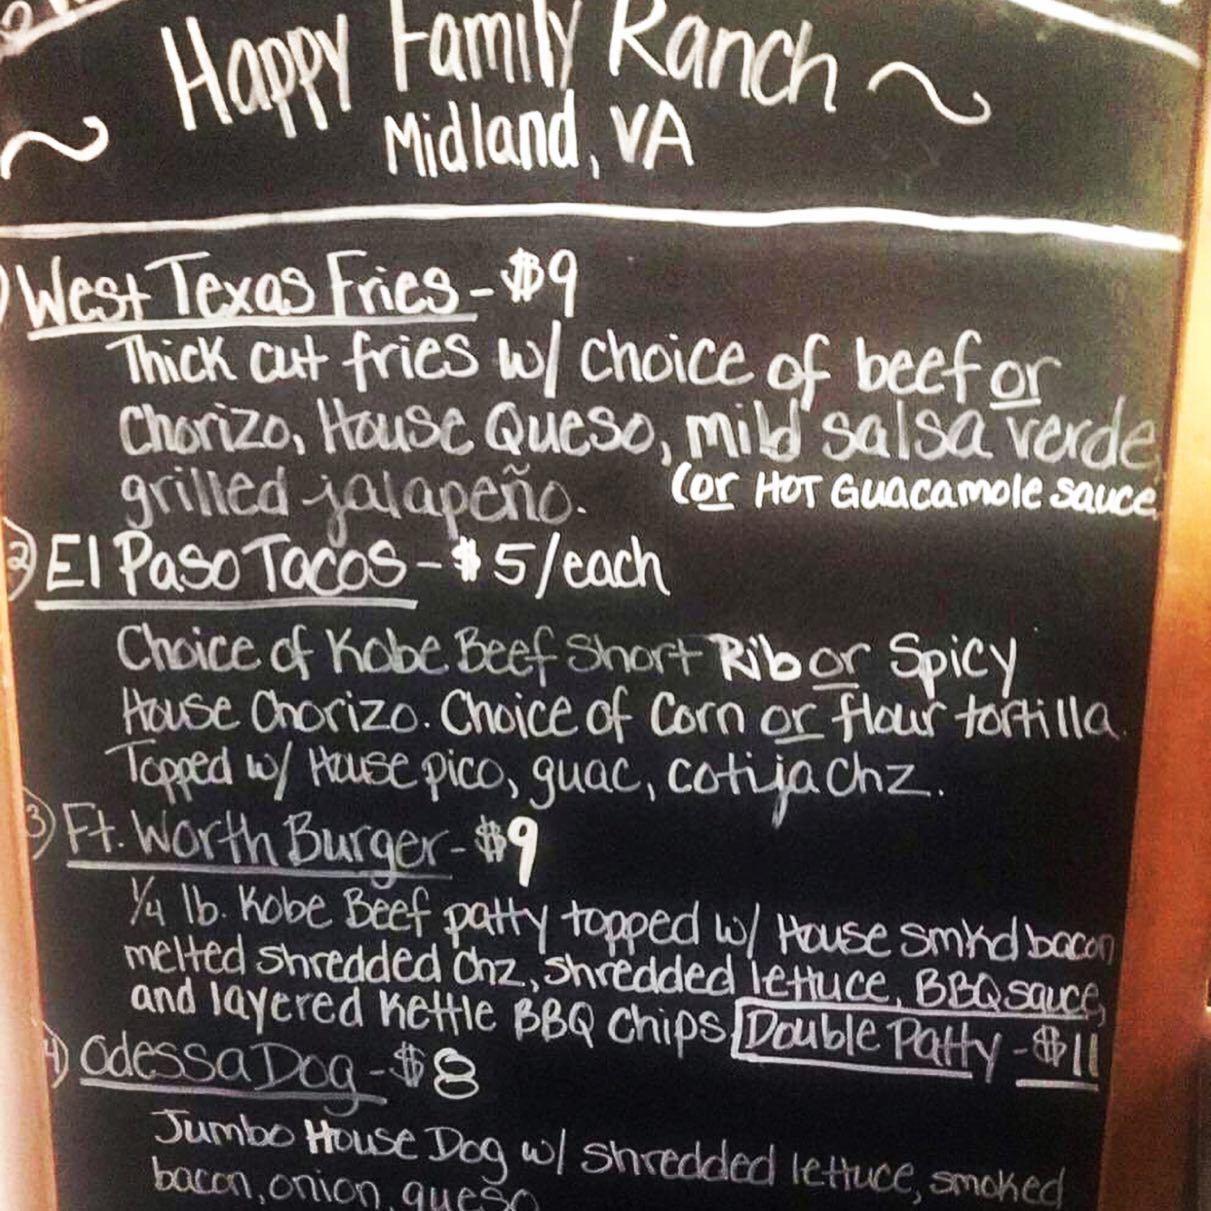 Happy Family Ranch
Midland, VA
West Texas Fries - $9
Thick cut fries w/ choice of beef or
Chorizo, House Queso, mild salsa verde,
(or HOT Guacamole sauce
grilled jalapeño.
2) El Paso Tacos - $5/each
Choice of Kobe Beef Short Rib or Spicy
House Chorizo. Choice of Corn or flour tortilla.
Topped w/ House pico, guac, cotija chz.
3) Ft. Worth Burger - $9
1/4 lb. Kobe Beef patty topped w/ House smkd bacon
melted shredded chz, shredded lettuce, BBQ sauce,
and layered Kettle BBQ Chips Double Patty - $11
4) Odessa Dog - $8
Jumbo House Dog w/ shredded lettuce, smoked
bacon, onion, queso